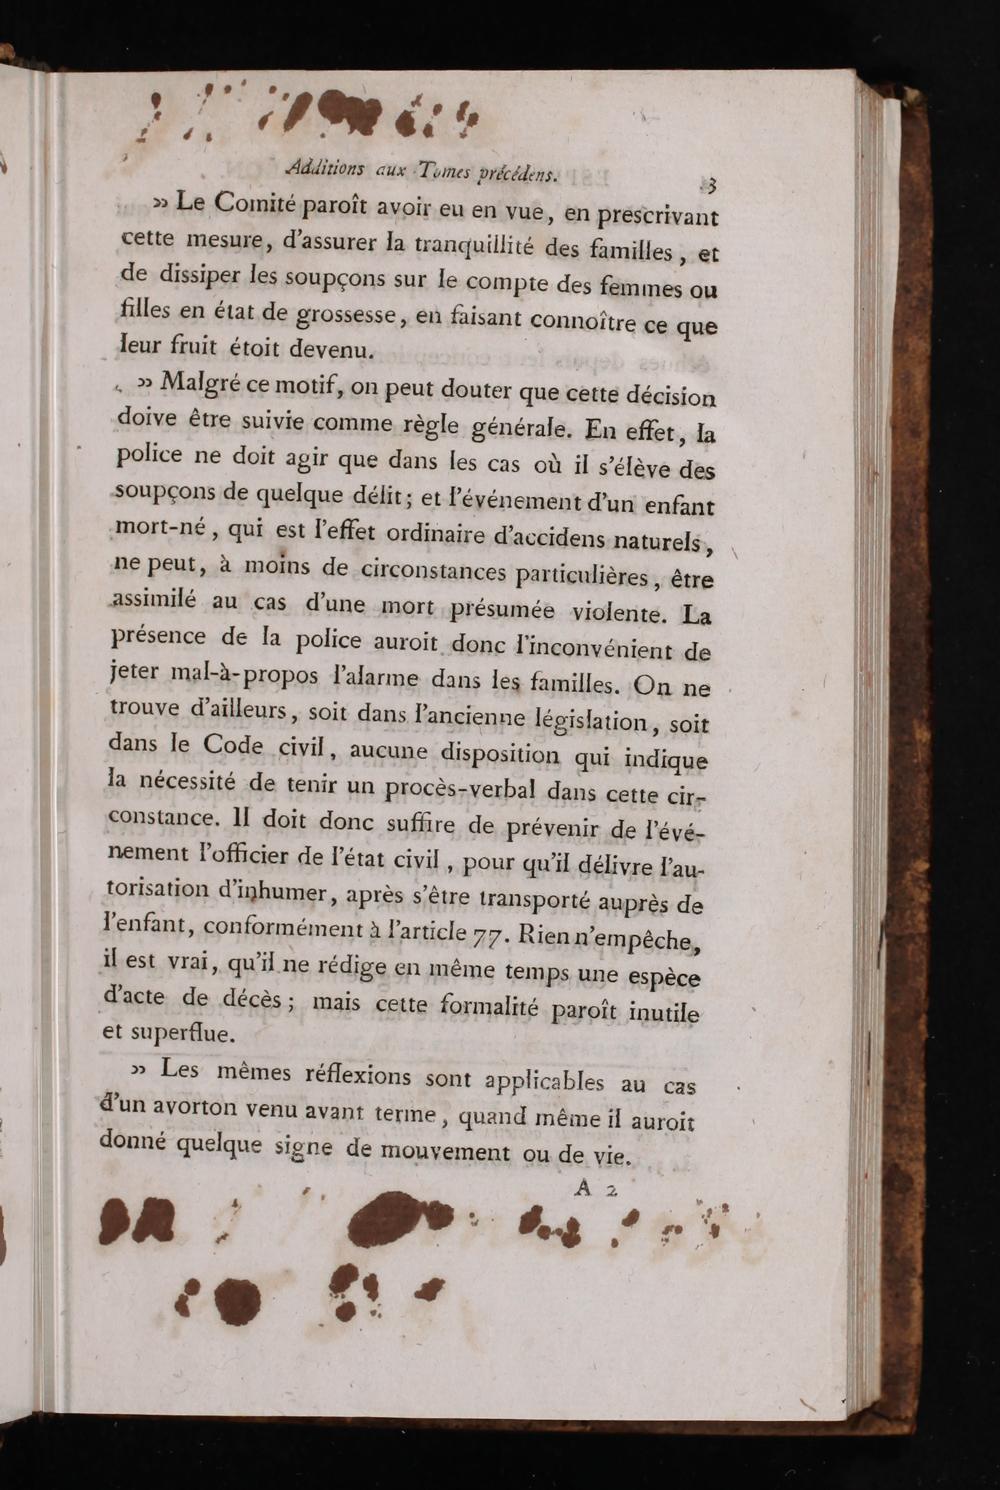 Additions aux Tomes précédens. 3
» Le Comité paroît avoir eu en vue, en prescrivant
cette mesure, d'assurer la tranquillité des familles, et
de dissiper les soupçons sur le compte des femmes ou
filles en état de grossesse, en faisant connoître ce que
leur fruit étoit devenu.
» Malgré ce motif, on peut douter que cette décision
doive être suivie comme règle générale. En effet, la
police ne doit agir que dans les cas où il s'élève des
soupçons de quelque délit; et l'événement d'un enfant
mort-né, qui est l'effet ordinaire d'accidens naturels,
ne peut, à moins de circonstances particulières, être
assimilé au cas d'une mort présumée violente. La
présence de la police auroit donc l'inconvénient de
jeter mal-à-propos l'alarme dans les familles. On ne
trouve d'ailleurs, soit dans l'ancienne législation, soit
dans le Code civil, aucune disposition qui indique
la nécessité de tenir un procès-verbal dans cette cir-
constance. Il doit donc suffire de prévenir de l'évé-
nement l'officier de l'état civil, pour qu'il délivre l'au-
torisation d'inhumer, après s'être transporté auprès de
l'enfant, conformément à l'article 77. Rien n'empêche,
il est vrai, qu'il ne rédige en même temps une espèce
d'acte de décès; mais cette formalité paroît inutile
et superflue.
» Les mêmes réflexions sont applicables au cas
d'un avorton venu avant terme, quand même il auroit
donné quelque signe de mouvement ou de vie.
A 2